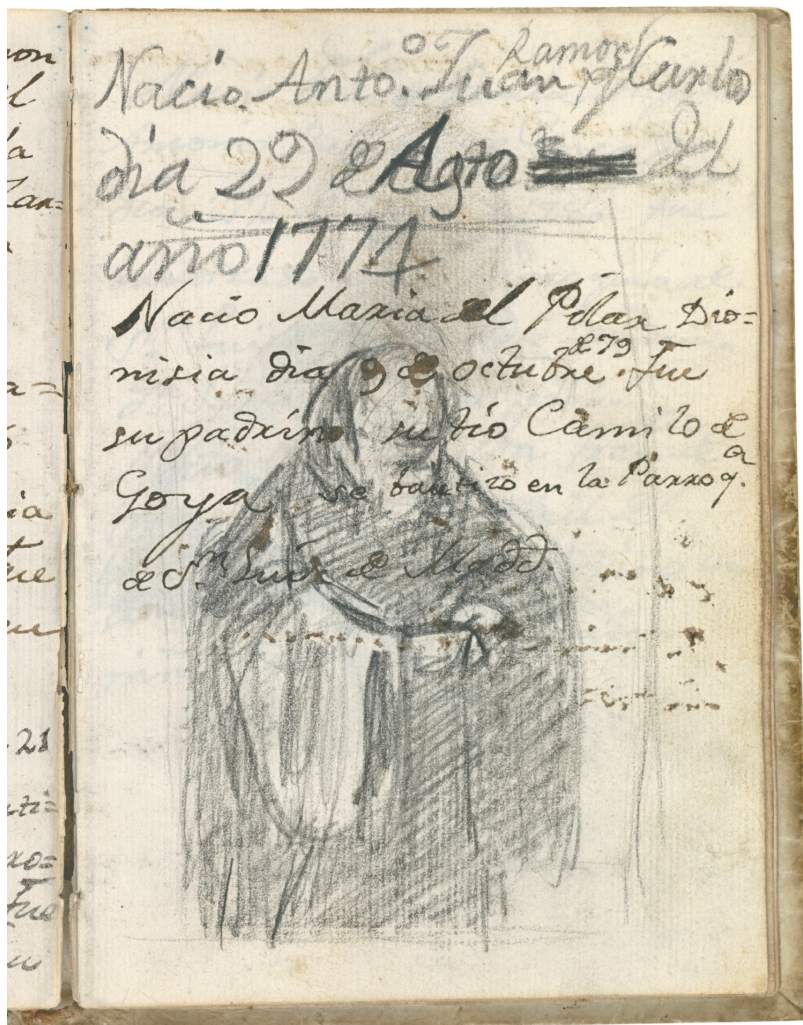 Nacio. Anto. Juan Ramon y Carlos
dia 29 de Agto. del
año 1774
Nacio Maria del Pilar Dio=
nisia dia 9 de octubre de 79. fue
su padrino su tio Camilo de
Goya se bautizo en la Parroqa.
de Sn. Luis de Madd.
on
l
a
Zar=
a=
ia
fue
su
21
uti=
xo=
fue
su